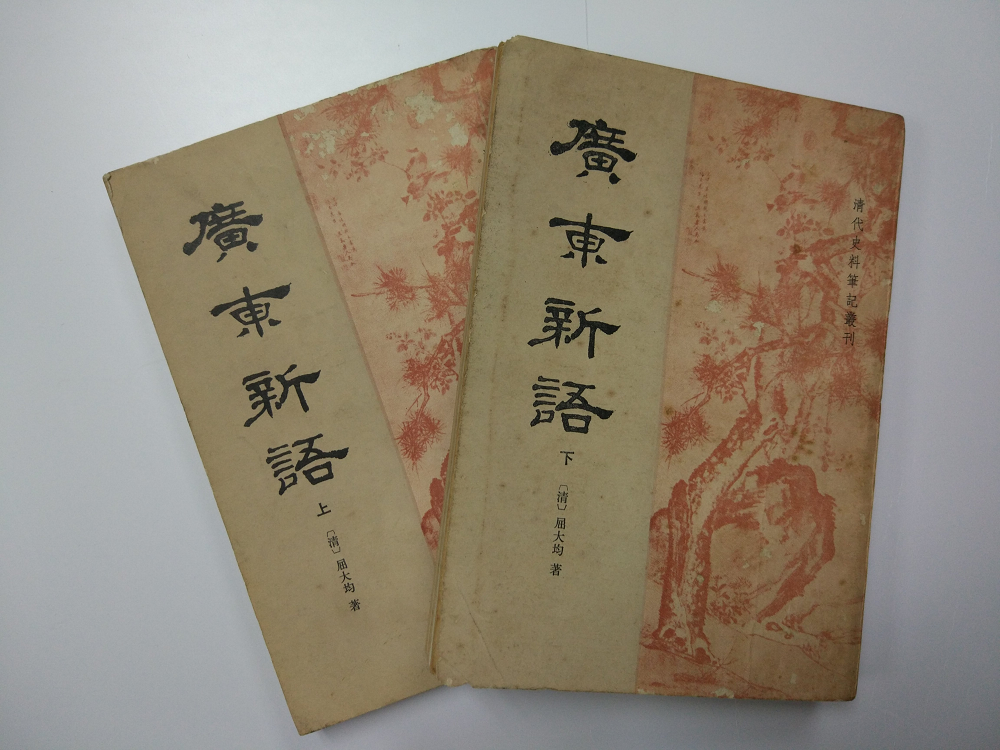 廣東新語
上 〔清〕屈大均 著
廣東新語
下 〔清〕屈大均 著
清代史料筆記叢刊